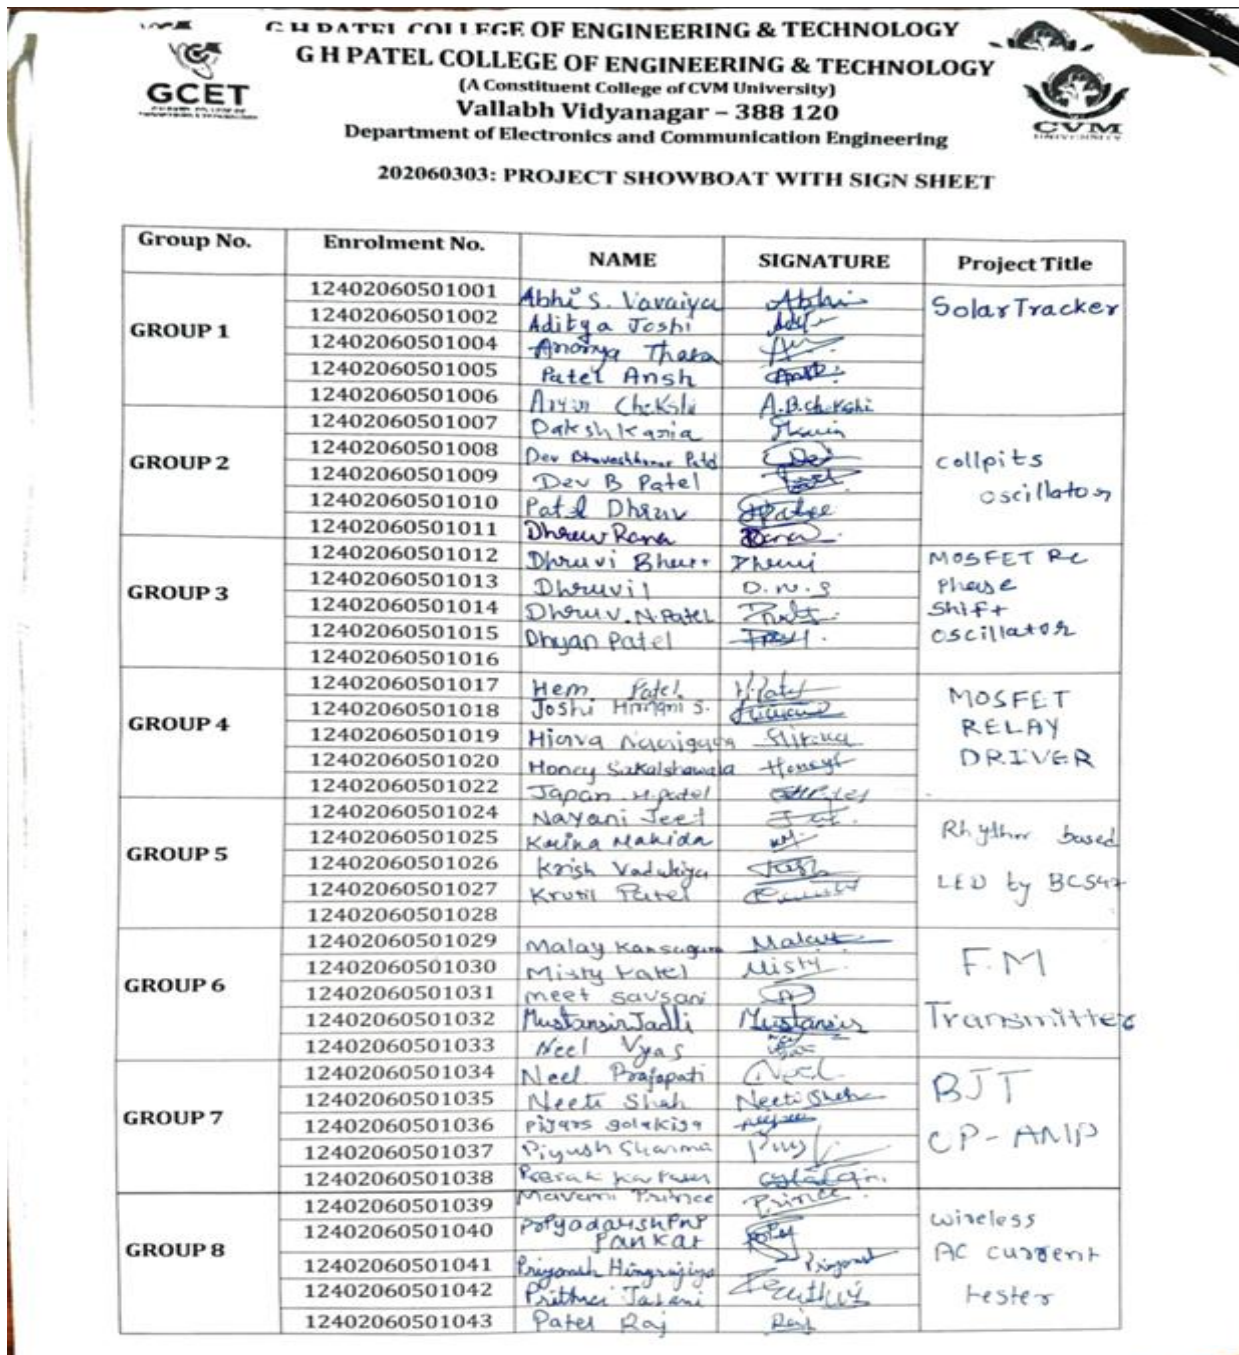 G H PATEL COLLEGE OF ENGINEERING & TECHNOLOGY
G H PATEL COLLEGE OF ENGINEERING & TECHNOLOGY
GCET
(A Constituent College of CVM University)
Vallabh Vidyanagar – 388 120
CVM
UNIVERSITY
Department of Electronics and Communication Engineering
202060303: PROJECT SHOWBOAT WITH SIGN SHEET
Group No. Enrolment No. NAME SIGNATURE Project Title
GROUP 1
12402060501001 Abhi S. Vavaiya Abhi SolarTracker
12402060501002 Aditya Joshi
12402060501004 Ananya
12402060501005 Patel Ansh
12402060501006 A.B.chokshi
GROUP 2
12402060501007 Daksh Kania
12402060501008 Dev Bhaveshkumar Patel Dev collpits
12402060501009 Dev B Patel oscillator
12402060501010 Patel Dhruv
12402060501011 Dhruv Rana Rana
GROUP 3
12402060501012 Dhruvi Bhatt Dhruvi MOSFET RC
12402060501013 Dhruvil D.N.S Phase
12402060501014 Dhruv.N.Patel Shift
12402060501015 Dhyan Patel oscillator
12402060501016
GROUP 4
12402060501017 Hem Patel H.Patel MOSFET
12402060501018 Joshi S. RELAY
12402060501019 DRIVER
12402060501020 Honey
12402060501022 Japan H.patel
GROUP 5
12402060501024 Nayani Jeet Rhythm based
12402060501025 Mahida
12402060501026 Krish Vadukiya LED by BC547
12402060501027 Krutil Patel
12402060501028
GROUP 6
12402060501029 Malay Kansagara Malay F.M
12402060501030 Misty Patel Misty
12402060501031 meet savsani Transmitter
12402060501032 Mustansir Mustansir
12402060501033 Neel Vyas
GROUP 7
12402060501034 Neel Prajapati Neel BJT
12402060501035 Neeti Shah Neeti Shah
12402060501036 golakiya OP-AMP
12402060501037 Piyush Sharma
12402060501038
GROUP 8
12402060501039 Mavani Prince Prince wireless
12402060501040 Pankaj AC current
12402060501041 Priyansh Hingrajiya Priyansh
12402060501042 tester
12402060501043 Patel Raj Raj